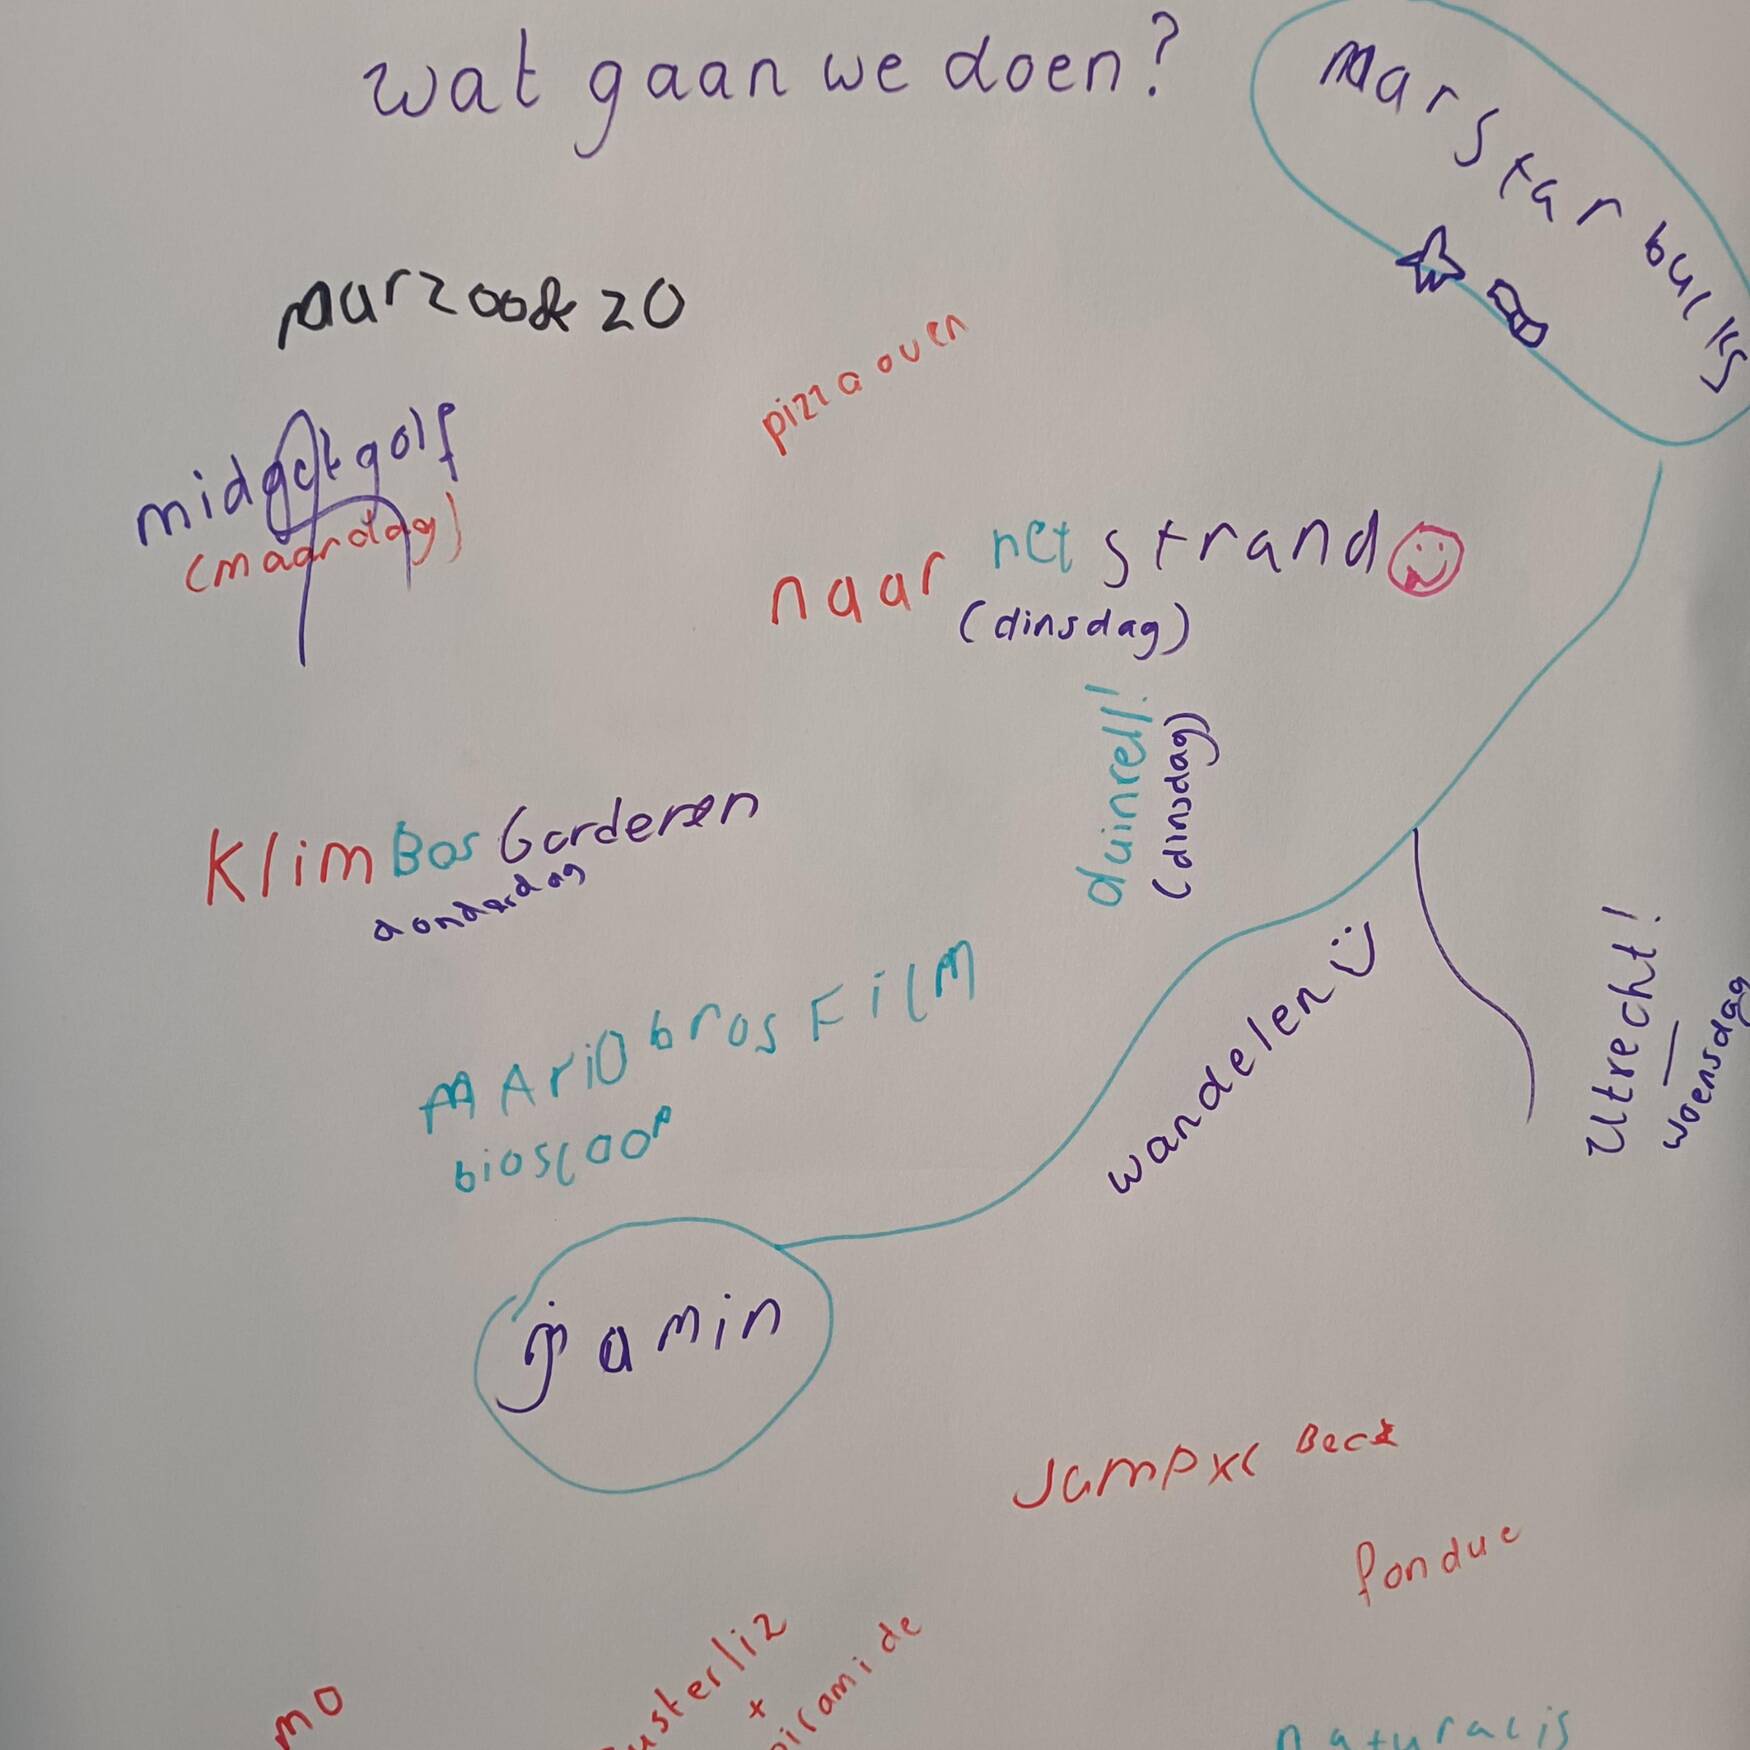 wat gaan we doen?
Mar Starbucks
pizza oven
midgetgolf
(maandag)
naar het strand
(dinsdag)
duinrell!
(dinsdag)
KlimBos Garderen
donderdag
MARiO bros FilM
bioscoop
wandelen
Utrecht!
woensdag
jamin
JUMP XL
fondue
usterliz
+
piramide
naturalis